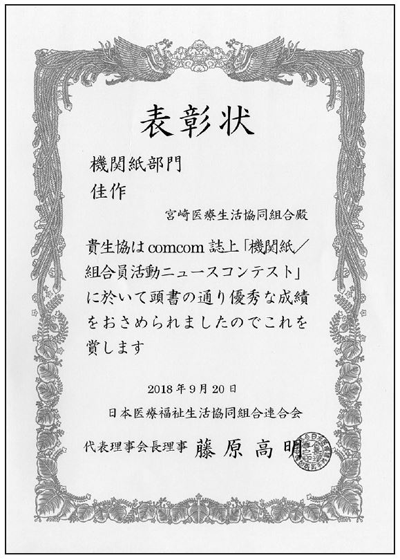 表彰状
機関紙部門
佳作
宮崎医療生活協同組合殿
貴生協はcomcom誌上「機関紙／
組合員活動ニュースコンテスト」
に於いて頭書の通り優秀な成績
をおさめられましたのでこれを
賞します
2018年9月20日
日本医療福祉生活協同組合連合会
代表理事会長理事 藤原高明